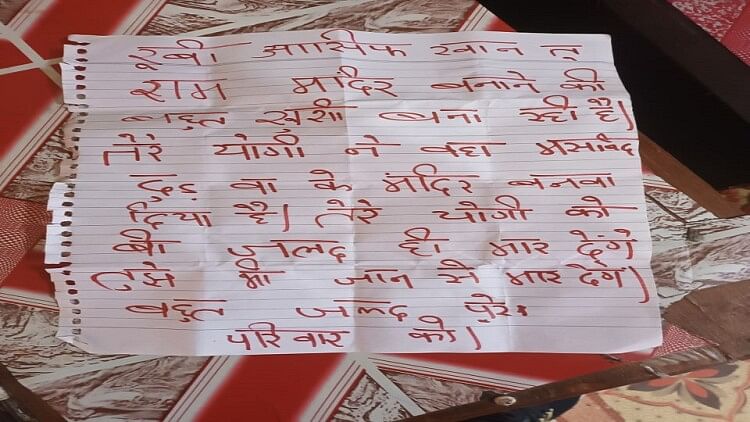 रूबी आसिफ खान तू
राम मंदिर बनाने की
बहुत खुशी बना रही है।
तेरे योगी ने वहा मसजिद
तुड़ वा के मंदिर बनवा
दिया है। तेरे योगी को
बी जलद ही मार देंगे
तुझे भी जान से मार देंगे।
बहुत जलद पुरे
परिवार को।